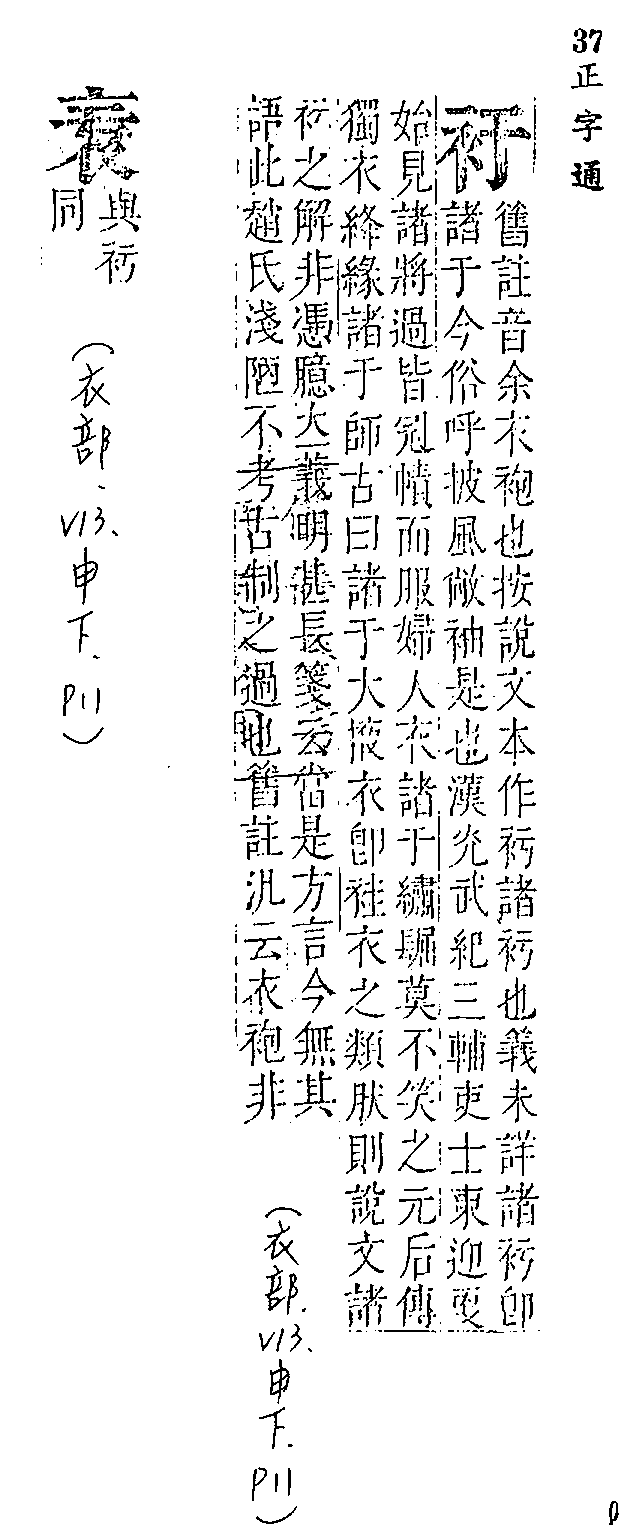 37 正字通
衧
舊註音余衣袍也按說文本作衧諸衧也義未詳諸衧卽
諸于今俗呼披風敞袖是也漢光武紀三輔吏士東迎更
始見諸將過皆冠幘而服婦人衣諸于繡䘿莫不笑之元后傳
獨衣絳緣諸于師古曰諸于大掖衣卽袿衣之類肰則說文諸
衧之解非憑臆大義明甚長箋云當是方言今無其
語此趙氏淺陋不考古制之過也舊註汎云衣袍非
(衣部.V13.申下.P11)
與衧
同
(衣部.V13.申下.P11)